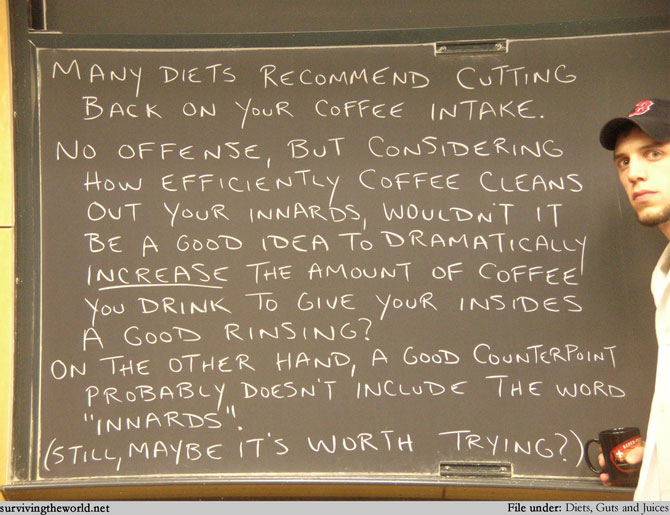 MANY DIETS RECOMMEND CUTTING
BACK ON YOUR COFFEE INTAKE.
NO OFFENSE, BUT CONSIDERING
HOW EFFICIENTLY COFFEE CLEANS
OUT YOUR INNARDS, WOULDN'T IT
BE A GOOD IDEA TO DRAMATICALLY
INCREASE THE AMOUNT OF COFFEE
YOU DRINK TO GIVE YOUR INSIDES
A GOOD RINSING?
ON THE OTHER HAND, A GOOD COUNTERPOINT
PROBABLY DOESN'T INCLUDE THE WORD
"INNARDS".
(STILL, MAYBE IT'S WORTH TRYING?)
B
survivingtheworld.net
File under: Diets, Guts and Juices